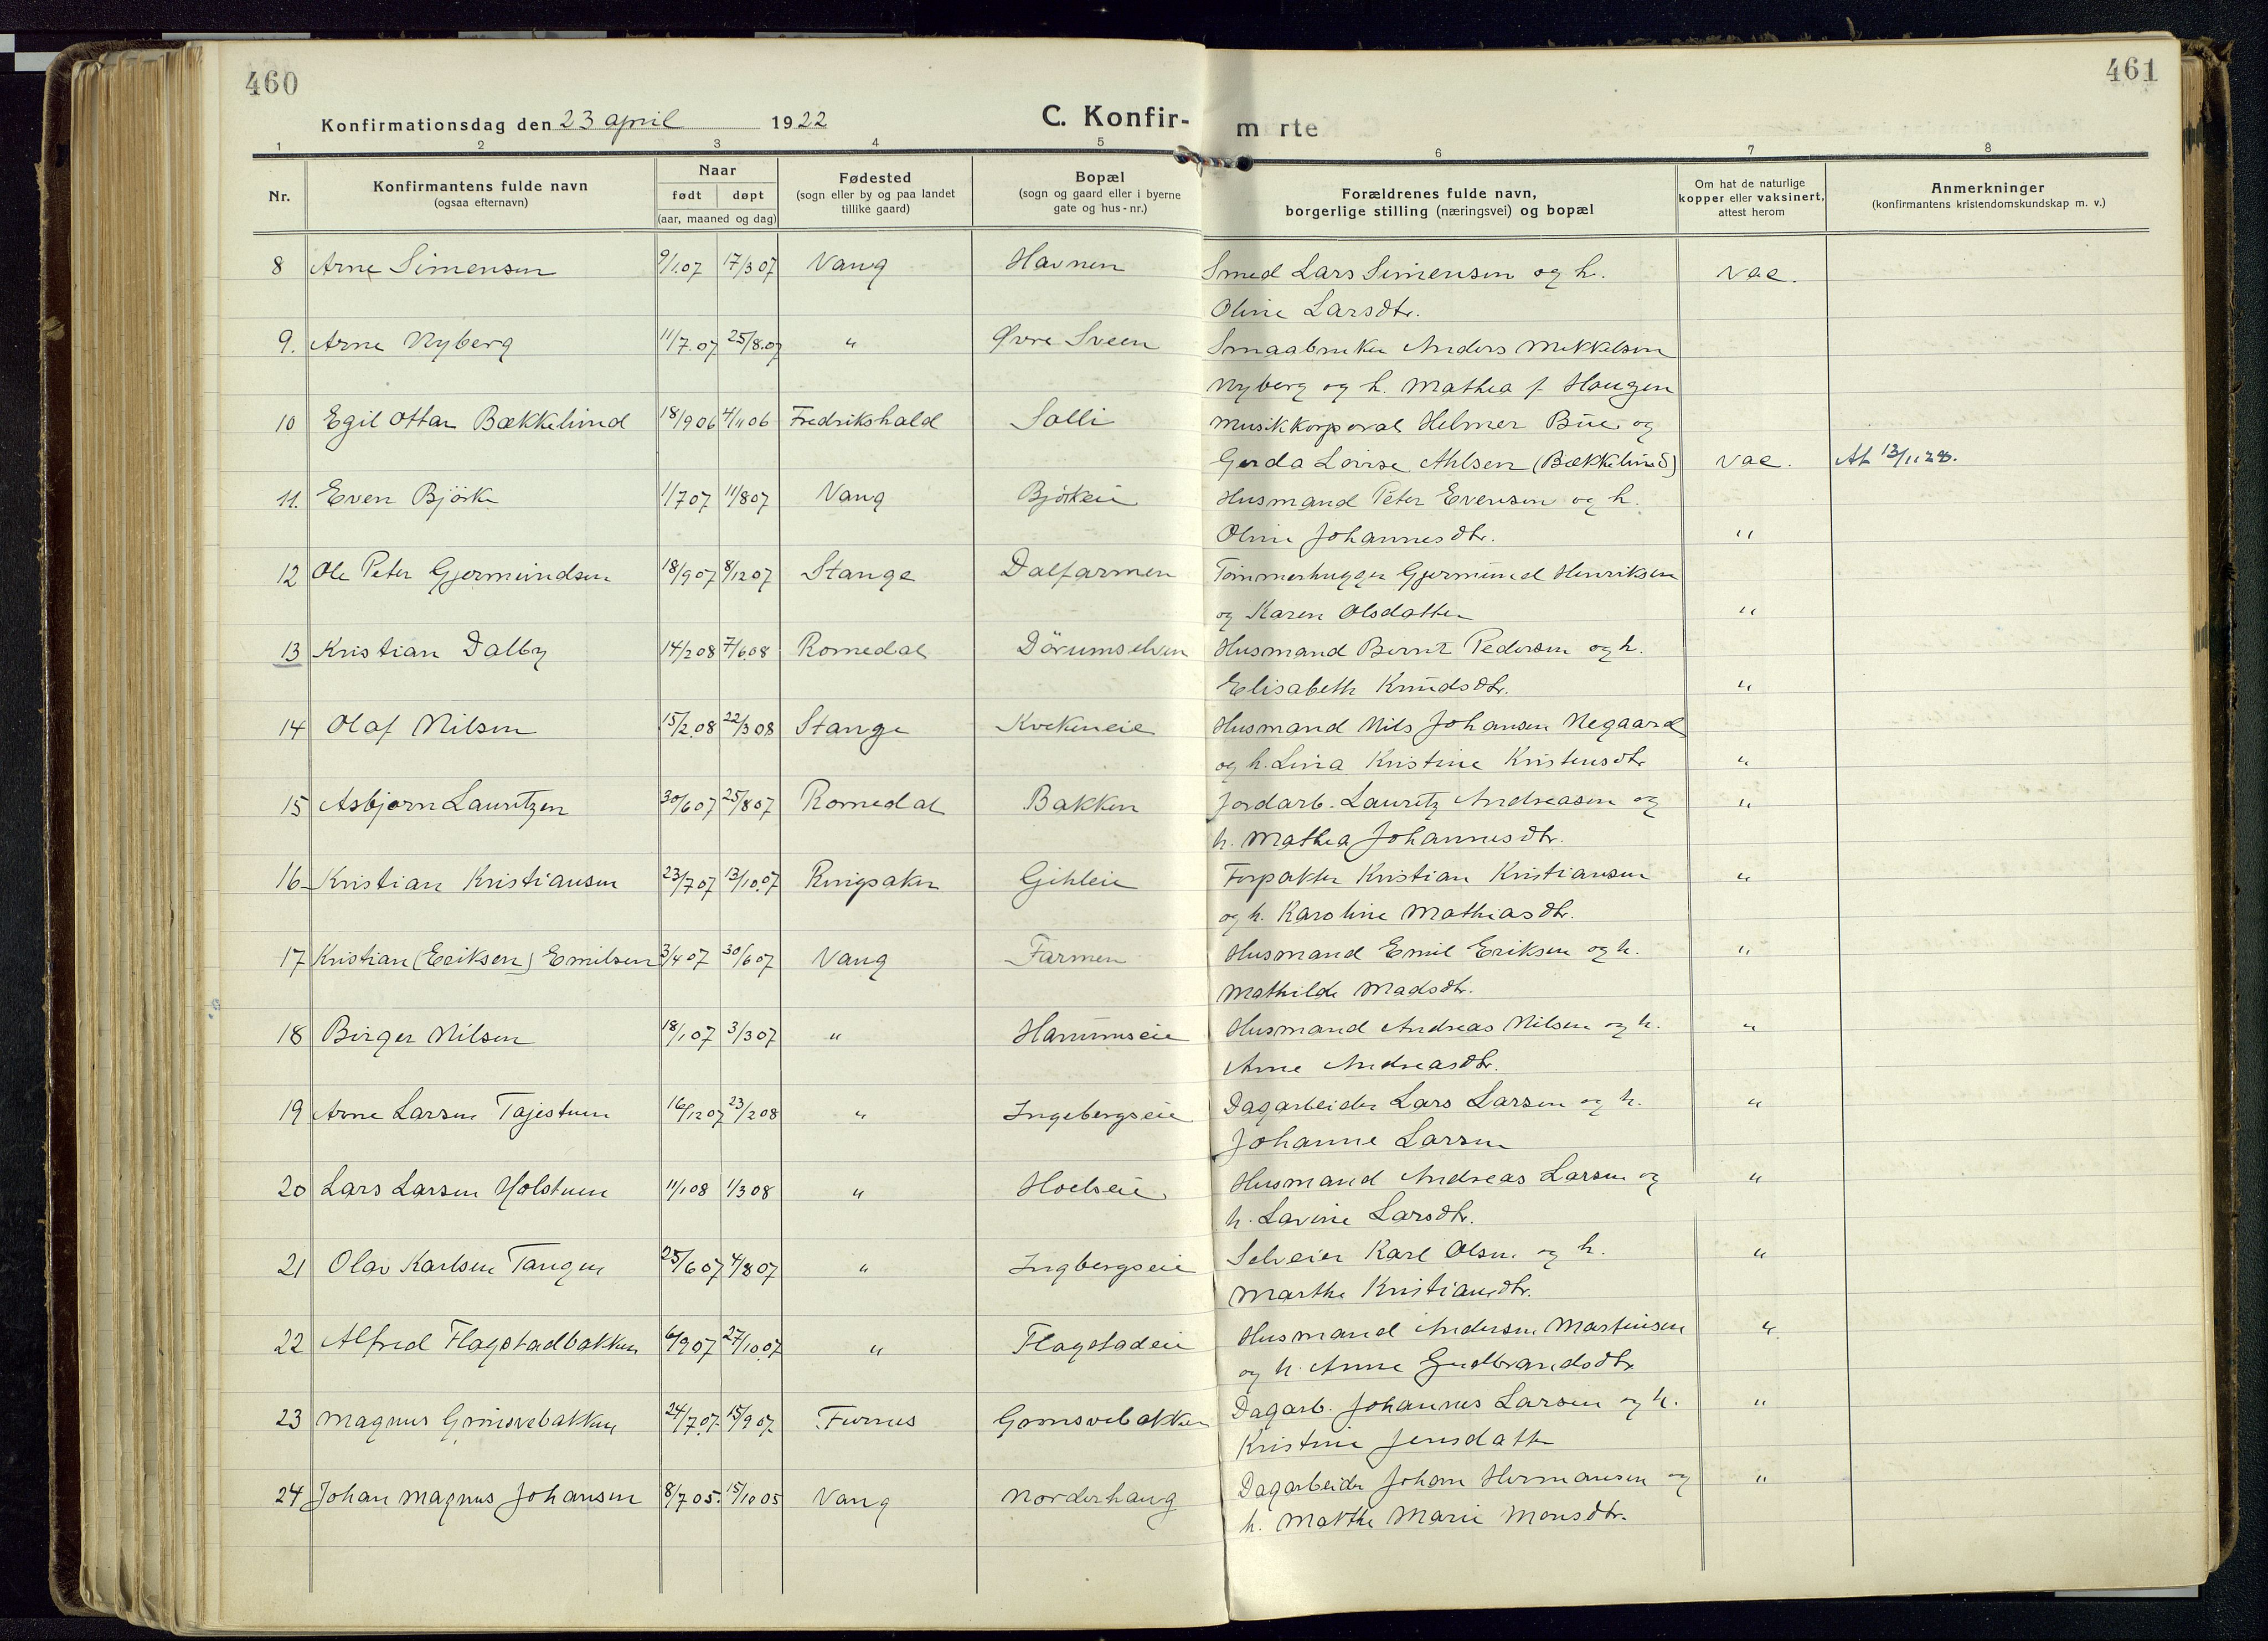 460
461
Konfirmationsdag den 23 april 1922
C. Konfir-
m rte
1 2 3 4 5 6 7 8
Nr.
Konfirmantens fulde navn
(ogsaa efternavn)
Naar
født døpt
(aar, maaned og dag)
Fødested
(sogn eller by og paa landet
tillike gaard)
Bopæl
(sogn og gaard eller i byerne
gate og hus-nr.)
Forældrenes fulde navn,
borgerlige stilling (næringsvei) og bopæl
Om hat de naturlige
kopper eller vaksinert,
attest herom
Anmerkninger
(konfirmantens kristendomskundskap m. v.)
8 Arne Simensen 9/1.07 17/3 07 Vang Havnen Smed Lars Simensen og h. vac.
Oline Larsdtr.
9. Arne Nyberg 11/7.07 25/8.07 " Øvre Sveen Smaabruker Anders Mikkelsen
Nyberg og h. Mathea f. Haugen
10 Egil Ottar Bækkelund 18/9 06 4/11 06 Fredrikshald Solli Musikkorporal Helmer Bue og
Gerda Lovise Ahlsen (Bækkelund) vac. At 13/11 28.
11. Even Bjørke 1/7 07 11/8 07 Vang Bjørkeie Husmand Peter Evensen og h.
Oline Johannesdtr. "
12 Ole Peter Gjermundsen 18/9 07 8/12 07 Stange Dalfarmen Tømmerhugger Gjermund Henriksen
og Karen Olsdatter "
13 Kristian Dalby 14/2 08 7/6.08 Romedal Dørumselven Husmand Bernt Pedersen og h.
Elisabeth Knudsdtr. "
14 Olaf Nilsen 15/2.08 22/3 08 Stange Kvekeneie Husmand Nils Johansen Negaard
og h. Lina Kristine Kristensdtr "
15 Asbjørn Lauritzen 30/6 07 25/8 07 Romedal Bakken Jordarb. Lauritz Andreasen og "
h. Mathea Johannesdtr.
16 Kristian Kristiansen 23/7 07 13/10.07 Ringsaker Gihleie Forpakter Kristian Kristiansen "
og h. Karoline Mathiasdtr.
17 Kristian (Eriksen) Emilsen 3/4 07 30/6 07 Vang Farmen Husmand Emil Eriksen og h. "
Mathilde Madsdtr.
18 Birger Nilsen 18/1 07 3/3 07 " Hanumseie Husmand Andreas Nilsen og h. "
Anne Andreasdtr.
19 Arne Larsen Tajestuen 16/12 07 23/2 08 " Ingebergseie Dagarbeider Lars Larsen og h. "
Johanne Larsen
20 Lars Larsen Holstuen 11/1 08 1/3 08 " Hoelseie Husmand Andreas Larsen og "
h. Lavine Larsdtr.
21 Olav Karlsen Tangen 25/6 07 4/8 07 " Ingbergseie Selveier Karl Olsen og h. "
Marthe Kristiansdtr.
22 Alfred Flagstadbakken 6/9 07 27/10.07 " Flagstadeie Husmand Andersen Martinsen "
og h. Anne Gudbrandsdtr
23 Magnus Grimsvebakken 24/7.07. 15/9 07 Furnes Gomsvebakken Dagarb. Johannes Larsen og h. "
Kristine Jensdatter
24 Johan Magnus Johansen 8/7 05. 15/10 05 Vang Norderhaug Dagarbeider Johan Hermansen og "
h. Marthe Marie Monsdtr.